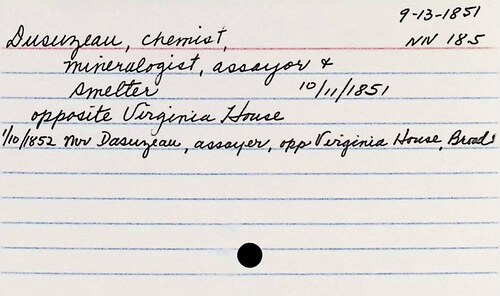 9-13-1851
Dusuzeau, chemist, NN 18.5
mineralogist, assayor &
smelter 10/11/1851
opposite Virginia House
1/10/1852 Mr Dasuzeau, assayer, opp Virginia House, Broad